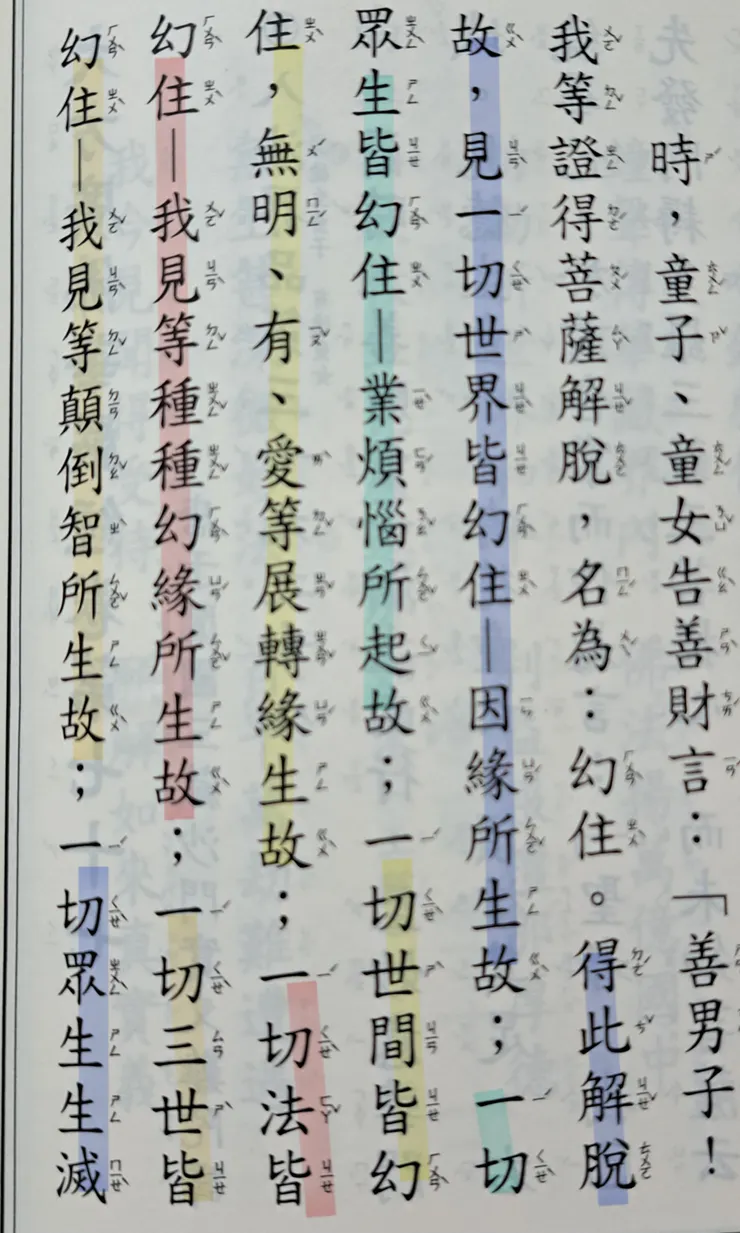 時，童子、童女告善財言：「善男子！
我等證得菩薩解脫，名為：幻住。得此解脫
故，見一切世界皆幻住｜因緣所生故；一切
眾生皆幻住｜業煩惱所起故；一切世間皆幻
住，無明、有、愛等展轉緣生故；一切法皆
幻住｜我見等種種幻緣所生故；一切三世皆
幻住｜我見等顛倒智所生故；一切眾生生滅